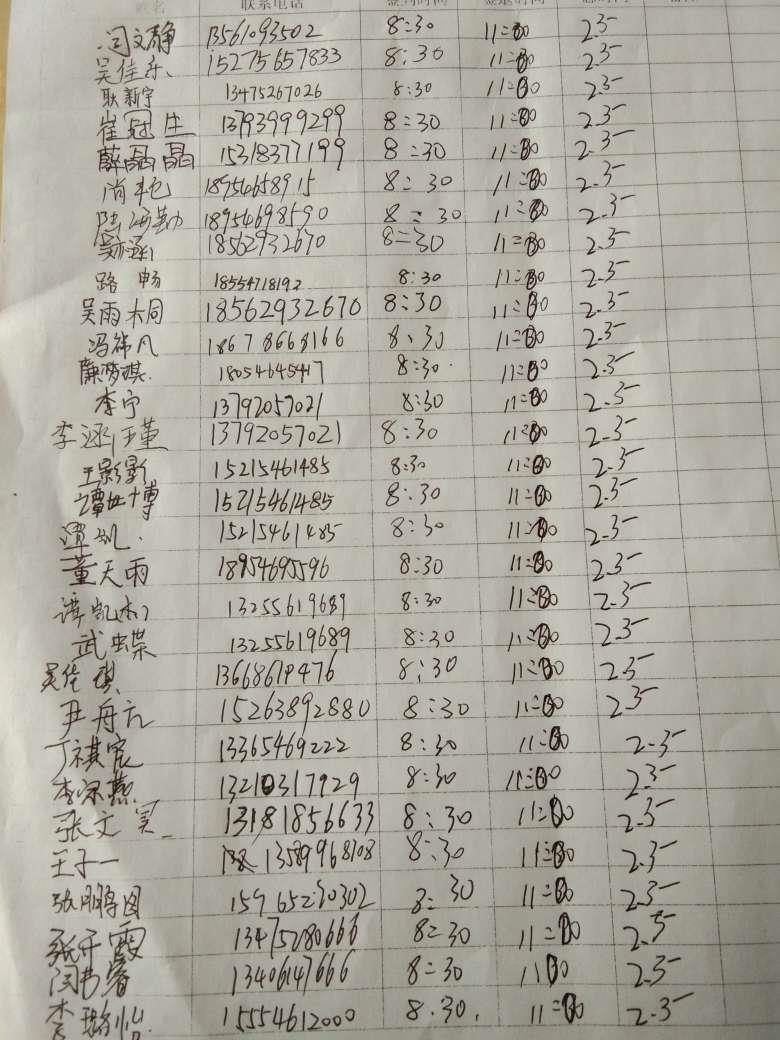 姓名 联系电话 签到时间 签退时间
闫文静 13561093502 8:30 11:00 2.5
吴佳乐 15275657833 8:30 11:00 2.5
耿新宇 13475267026 8:30 11:00 2.5
崔冠生 13793999299 8:30 11:00 2.5
薛晶晶 15318377199 8:30 11:00 2.5
尚艳 18954658915 8:30 11:00 2.5
陆海勤 18954698590 8:30 11:00 2.5
18562932670 8:30 11:00 2.5
路畅 18554718192 8:30 11:00 2.5
吴雨桐 18562932670 8:30 11:00 2.5
冯祎凡 18678668166 8:30 11:00 2.5
廉梦琪 18054645417 8:30 11:00 2.5
李宁 13792057021 8:30 11:00 2.5
李涵瑾 13792057021 8:30 11:00 2.5
王影影 15215461485 8:30 11:00 2.5
谭世博 15215461485 8:30 11:00 2.5
谭凯 15215461485 8:30 11:00 2.5
董天雨 18954695596 8:30 11:00 2.5
谭凯 13255619689 8:30 11:00 2.5
武蝶 13255619689 8:30 11:00 2.5
吴佳琪 13668619476 8:30 11:00 2.5
尹舟 15263892880 8:30 11:00 2.5
丁祺宸 13365469222 8:30 11:00 2.5
李燕 13210317929 8:30 11:00 2.5
张文 13181856633 8:30 11:00 2.5
王子一 13589968108 8:30 11:00 2.5
张鹏图 15965230302 8:30 11:00 2.5
张霞 13475280666 8:30 11:00 2.5
闫书睿 13406147666 8:30 11:00 2.5
李璐怡 15554612000 8:30 11:00 2.5